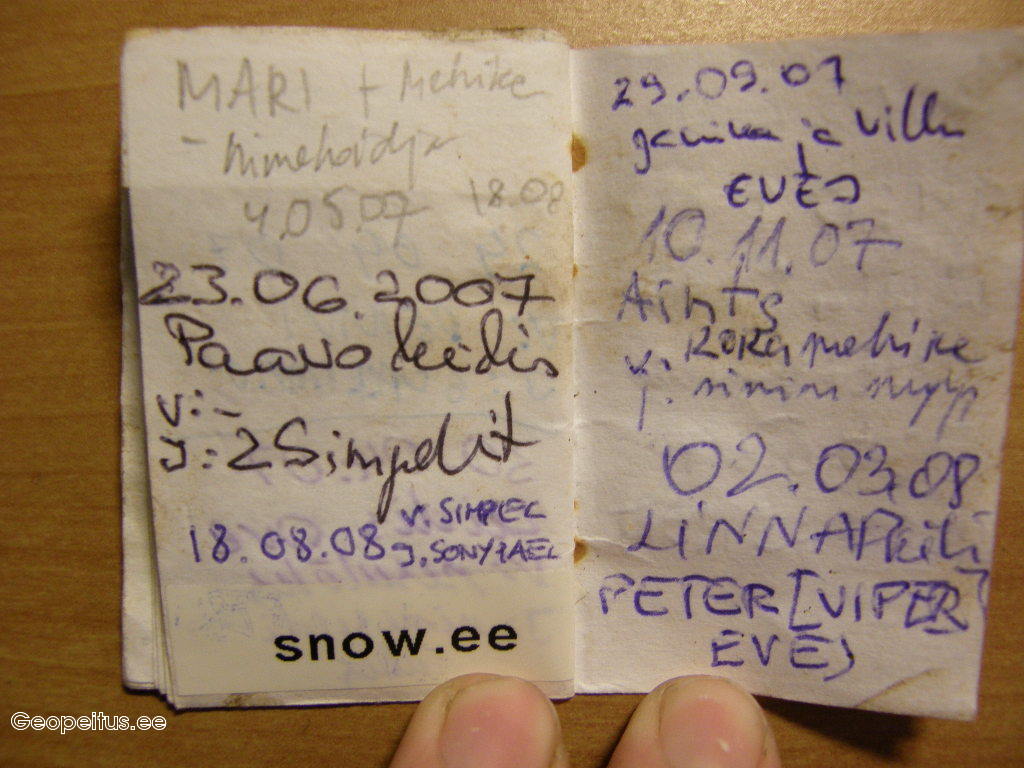 MARI + Mehike
- nimehoidja
4.05.07 18.08
23.06.2007
Paavo leidis
v: -
J: 2 Simpelit
v. SIMPEL
18.08.08 J. SONY+AEL
snow.ee
29.09.07
ja Villu
EVEJ
10.11.07
Aints
v: KOKA mehike
j. sinine
02.03.08
LINNAPEILI
PETER [VIPER]
EVEJ
Geopeitus.ee